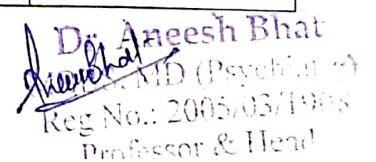 Dr. Aneesh Bhat
MD (Psychiatry)
Reg No.: 2005/03/1908
Professor & Head